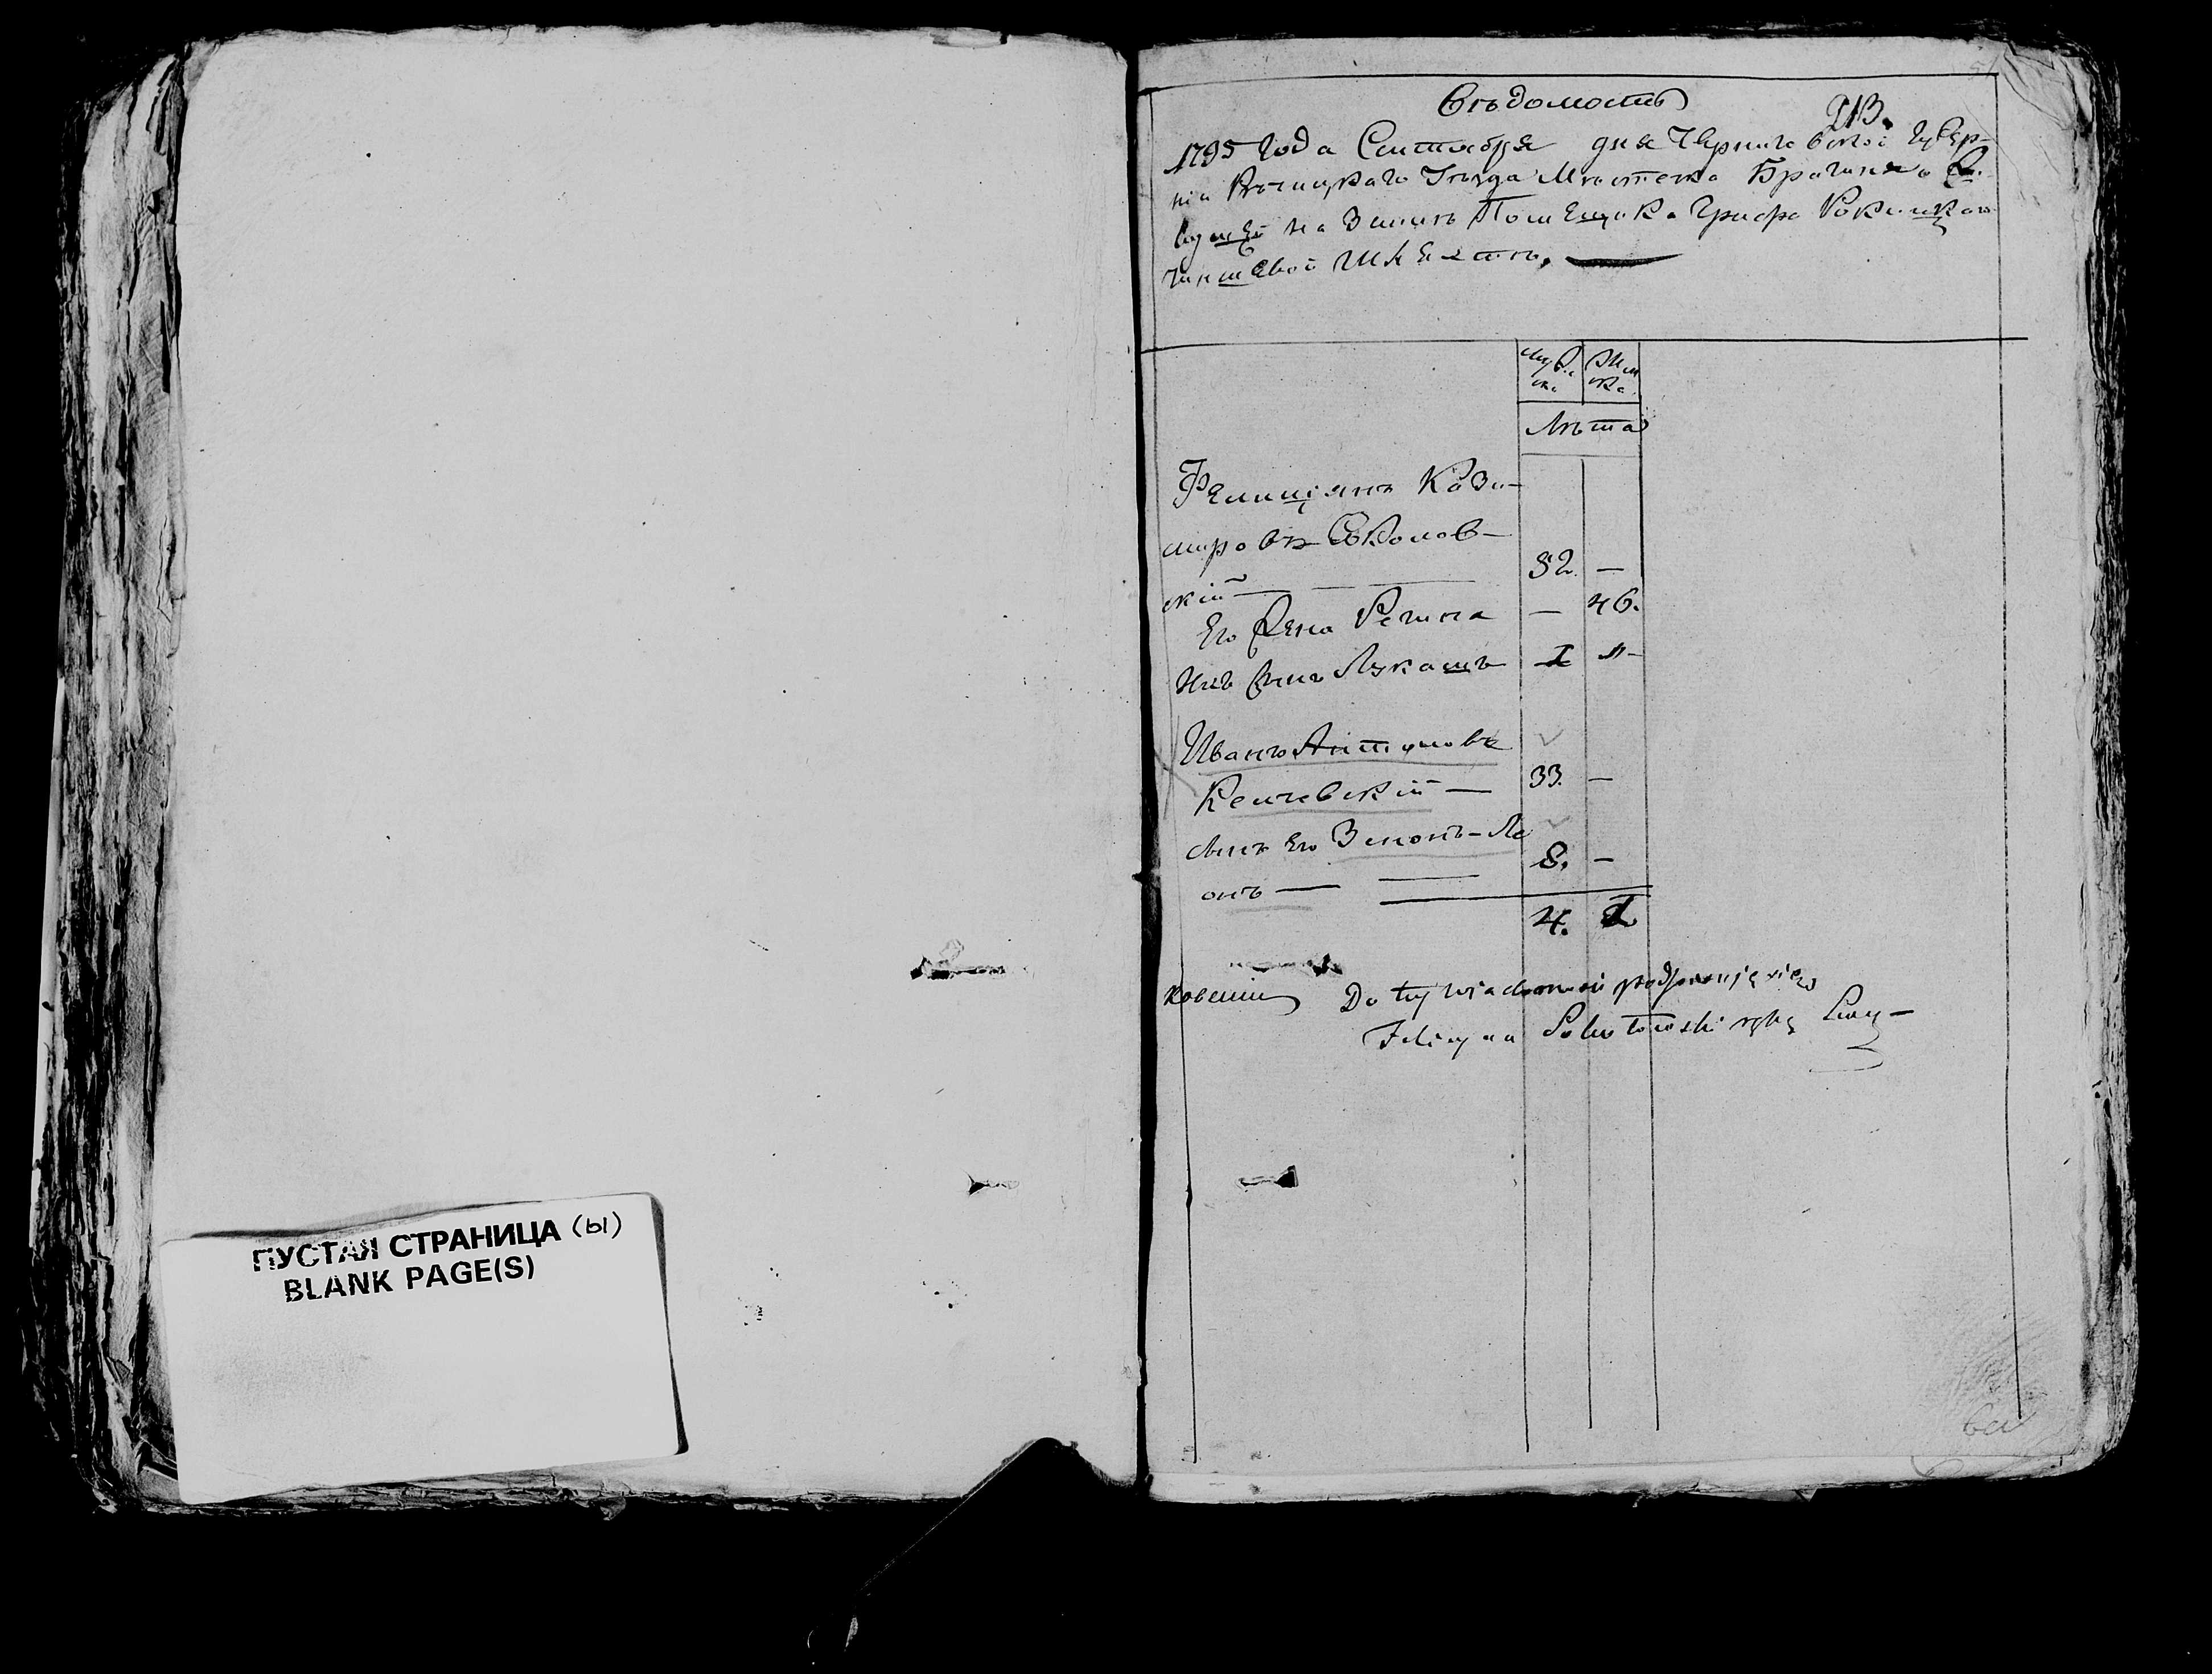 ПУСТАЯ СТРАНИЦА (ы)
BLANK PAGE(S)
Вѣдомость
213.
1795 Года Сентября дня Черниговской Губер-
ніи Речицкаго Уезда Мѣстечка Брагиня
на Земли Помещика Графа Ракицкаго
чиншевой Шляхти.
мужеска
женска
Лѣта
Фелиціянъ Кази-
мировъ Соколов-
скій 52. —
Его Жена Регина — 46.
Ихъ Сынъ Лукашъ 1 "
Иванъ Антоновъ
Кенчевскій — 33. —
Сынъ Его Зенонъ-Ле
онъ — 8. —
4. 1.
Do tey wiadomości podpisuję się
Felicyan Sokołowski ręką